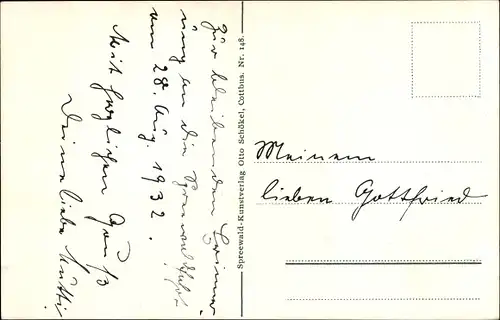 Zur bleibenden Erinner-
ung an die Spreewaldfahrt
am 28. Aug. 1932.
Mit herzlichem Gruß
Deine liebe Mutti.
Spreewald-Kunstverlag Otto Schökel, Cottbus. Nr. 148.
Meinem
lieben Gottfried